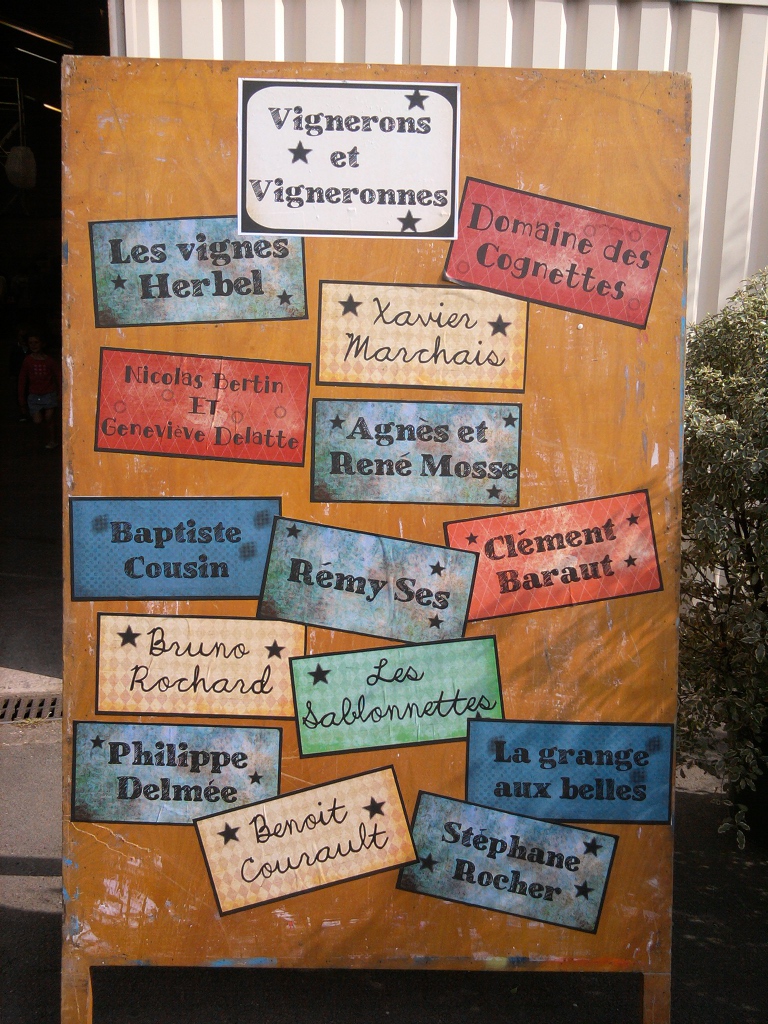 Vignerons
et
Vigneronnes
Domaine des
Cognettes
Les vignes
Herbel
Xavier
Marchais
Nicolas Bertin
ET
Geneviève Delatte
Agnès et
René Mosse
Baptiste
Cousin
Rémy Ses
Clément
Baraut
Bruno
Rochard
Les
Sablonnettes
Philippe
Delmée
La grange
aux belles
Benoit
Courault
Stéphane
Rocher